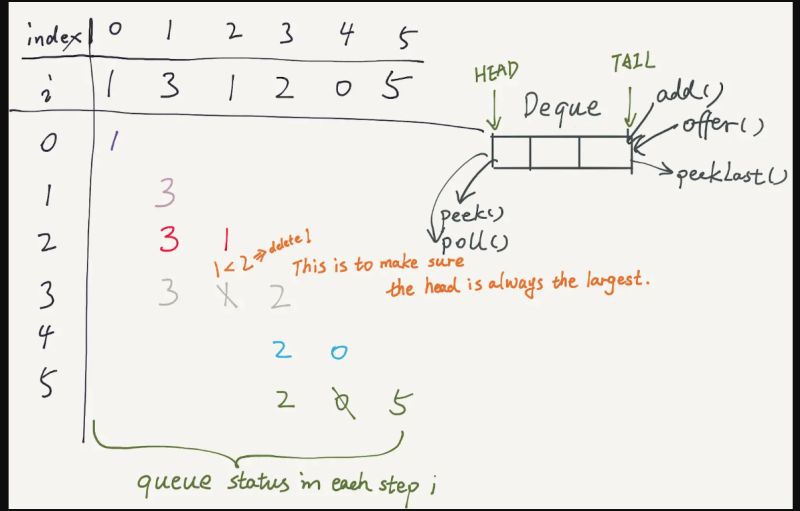 index 0 1 2 3 4 5
i 1 3 1 2 0 5
HEAD
TAIL
Deque
add()
offer()
peekLast()
peek()
poll()
0 1
1 3
2 3 1
1<2⇒delete1
This is to make sure
the head is always the largest.
3 3 1 2
4 2 0
5 2 0 5
queue status in each step i